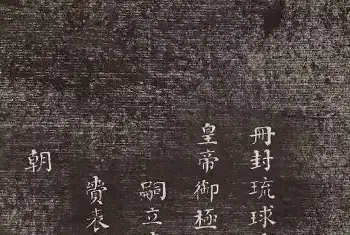 冊封琉球
皇帝御極
嗣立
賫表
朝